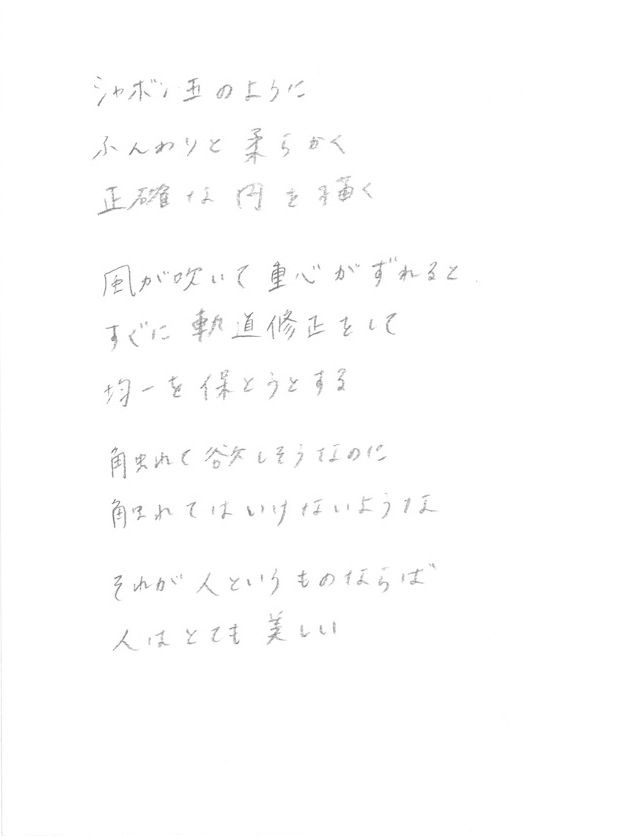 シャボン玉のように
ふんわりと柔らかく
正確な円を描く
風が吹いて重心がずれると
すぐに軌道修正をして
均一を保とうとする
触れて欲しそうなのに
触れてはいけないような
それが人というものならば
人はとても美しい